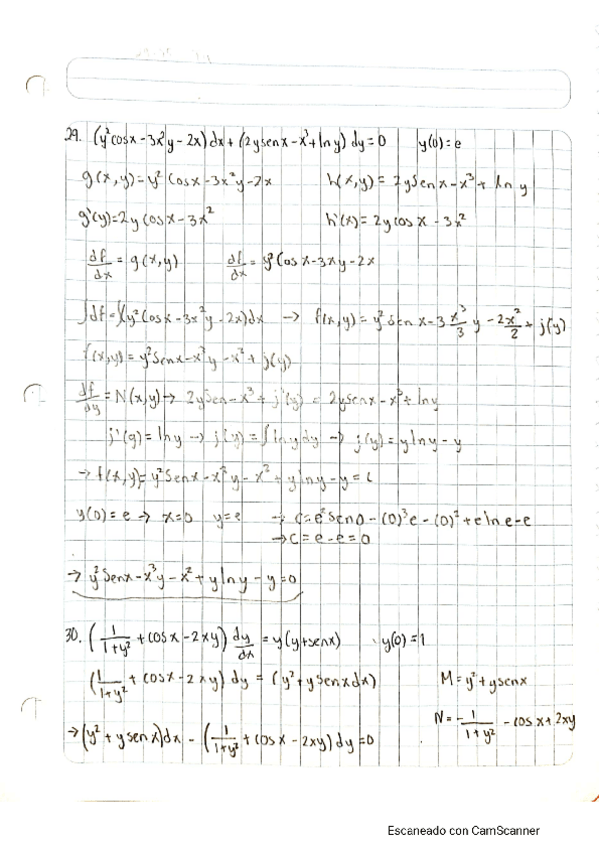 29. (y²cosx - 3x²y - 2x)dx + (2ysenx - x³ + lny) dy = 0 y(0) = e
g(x,y) = y² cosx - 3x²y - 2x h(x,y) = 2ysenx - x³ + ln y
g'(y) = 2y cosx - 3x² h'(x) = 2y cosx - 3x²
df/dx = g(x,y) df/dx = y² Cosx - 3xy - 2x
∫df = ∫(y²Cosx - 3x²y - 2x)dx → f(x,y) = y² sen x - 3 x³/3 y - 2x²/2 + j(y)
f(x,y) = y²senx - x³y - x² + j(y)
df/dy = N(x,y) → 2ysen - x³ + j'(y) = 2ysenx - x³ + lny
j'(y) = lny → j(y) = ∫lnydy → j(y) = ylny - y
→ f(x,y) = y²senx - x³y - x² + ylny - y = C
y(0) = e → x=0 y=e → C = e²sen0 - (0)³e - (0)² + elne - e
→ C = e - e = 0
→ y²senx - x³y - x² + ylny - y = 0
30. (1/1+y² + cosx - 2xy) dy/dx = y(y+senx) y(0) = 1
(1/1+y² + cosx - 2xy) dy = (y² + ysenxdx) M = y² + ysenx
→ (y² + ysenx)dx - (1/1+y² + cosx - 2xy) dy = 0 N = -1/1+y² - cosx + 2xy
Escaneado con CamScanner